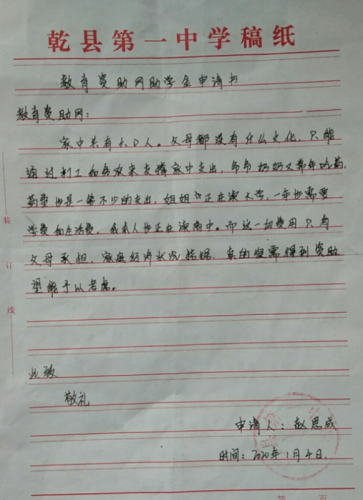 乾县第一中学稿纸
教育资助网助学金申请书
教育资助网:
家中共有六口人。父母都没有什么文化,只能
通过打工和务农来支撑家中支出,爷爷奶奶又常年吃药,
药费也是一笔不少的支出,姐姐正在读大学,一年也需要
学费和生活费,我本人也正在读高中。而这一切费用只有
父母承担,家庭经济状况拮据,真的很需得到资助
望能予以考虑。
此致
敬礼
申请人:赵思成
时间:2020年1月4日.
装
订
线